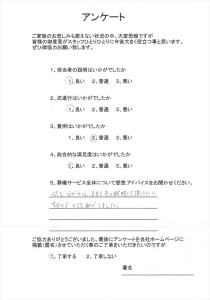 アンケート
ご家族のお悲しみも癒えない状況の中、大変恐縮ですが
皆様の御意見がスタッフひとりひとりに今後大きく役立つ事と思います。
ぜひ御協力お願い致します。
1、担当者の説明はいかがでしたか
1、良い 2、普通 3、悪い
2、式進行はいかがでしたか
1、良い 2、普通 3、悪い
3、費用はいかがでしたか
1、良い 2、普通 3、悪い
4、総合的な満足度はいかがでしたか
1、良い 2、普通 3、悪い
5、葬儀サービス全体について感想、アドバイスをお聞かせください。
ご協力ありがとうございました。最後にアンケートを当社ホームページに
掲載(匿名)させていただく事のご了承をいただきたいのですが
1、了承する 2、了承しない
署名